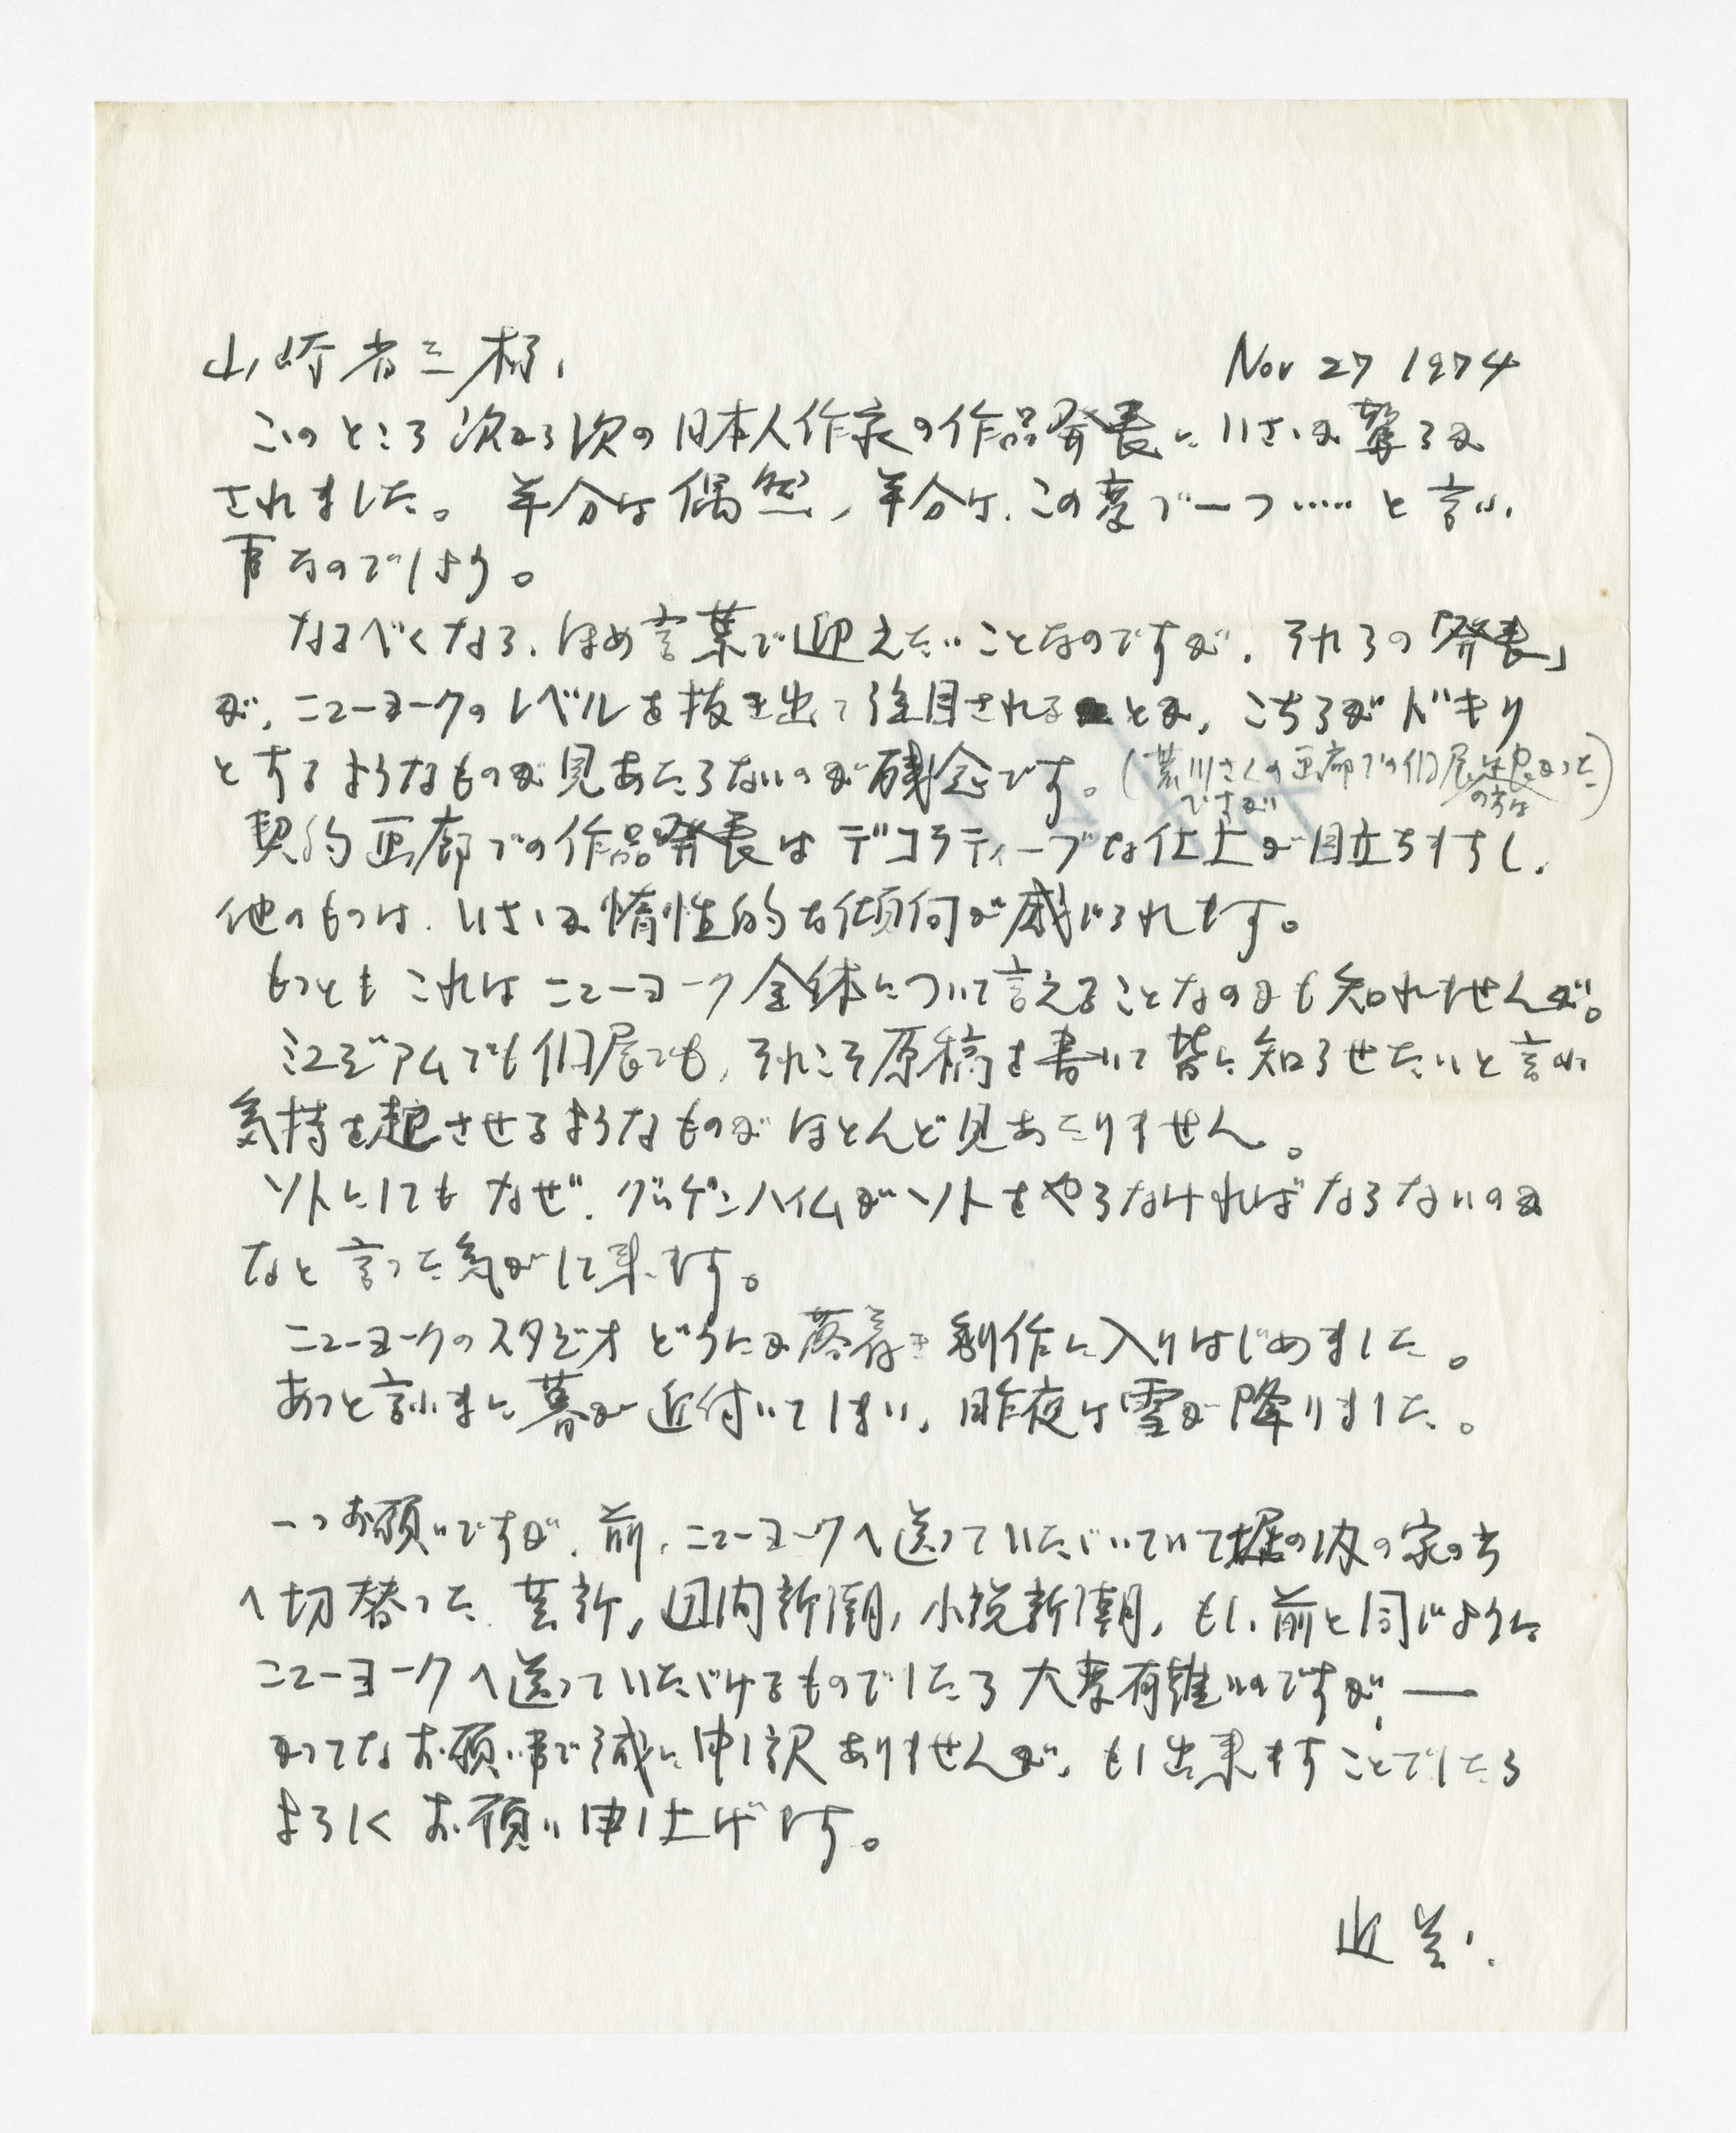 山崎省三様、
Nov 27 1974
このところ次から次の日本人作家の作品発表にいささか驚ろか
されました。半分は偶然、半分は、この夢で一つ……と言い
事なのでしょう。
なるべくなら、ほめ言葉で迎えたいことなのですが、それらの「発表」
が、ニューヨークのレベルを抜き出て注目されるとか、こちらがドキリ
とするようなものが見あたらないのが残念です。(荒川さんの画廊での個展は良かった
のですが
の方は)
契約画廊での作品発表はデコラティーブな仕上が目立ちますし、
他のものは、いささか惰性的な傾向が感じられます。
もっともこれはニューヨーク全体について言えることなのかも知れませんが。
ミュージアムでも個展でも、それこそ原稿を書いて皆に知らせたいと言い
気持を起させるようなものがほとんど見あたりません。
ソトにしてもなぜ、グッゲンハイムがソトをやらなければならないのか
なと言った気がして来ます。
ニューヨークのスタジオどうにか落着き制作に入りはじめました。
あっと言いまに暮が近付いてしまい、昨夜は雪が降りました。
一つお願いですが、前、ニューヨークへ送っていただいていて堀の内の家の方
へ切替った芸新、週間新潮、小説新潮、もし、前と同じように
ニューヨークへ送っていただけるものでしたら大変有難いのですが、—
かってなお願い事で誠に申し訳ありませんが、もし出来ますことでしたら
よろしくお願い申し上げます。